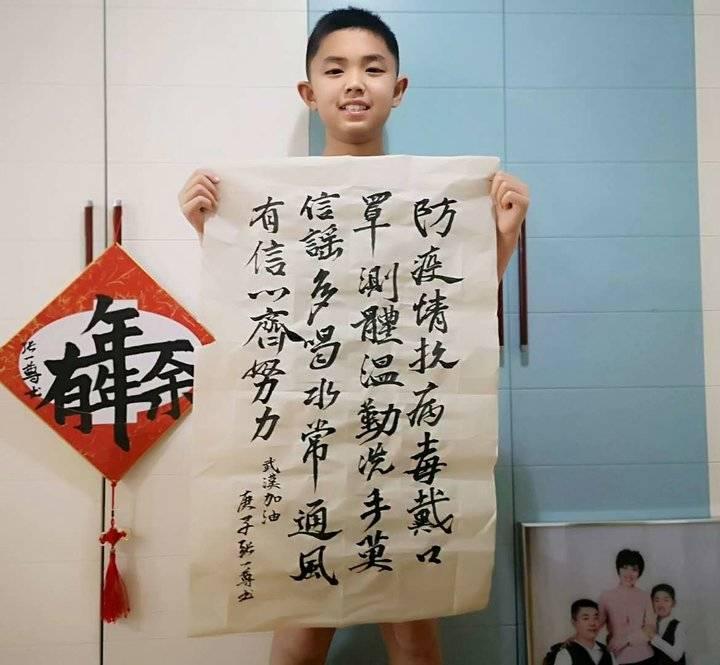 防疫情抗病毒戴口
罩測體温勤洗手莫
信謠多喝水常通風
有信心齊努力
武漢加油
庚子张一尊书
年年有余
张一尊书